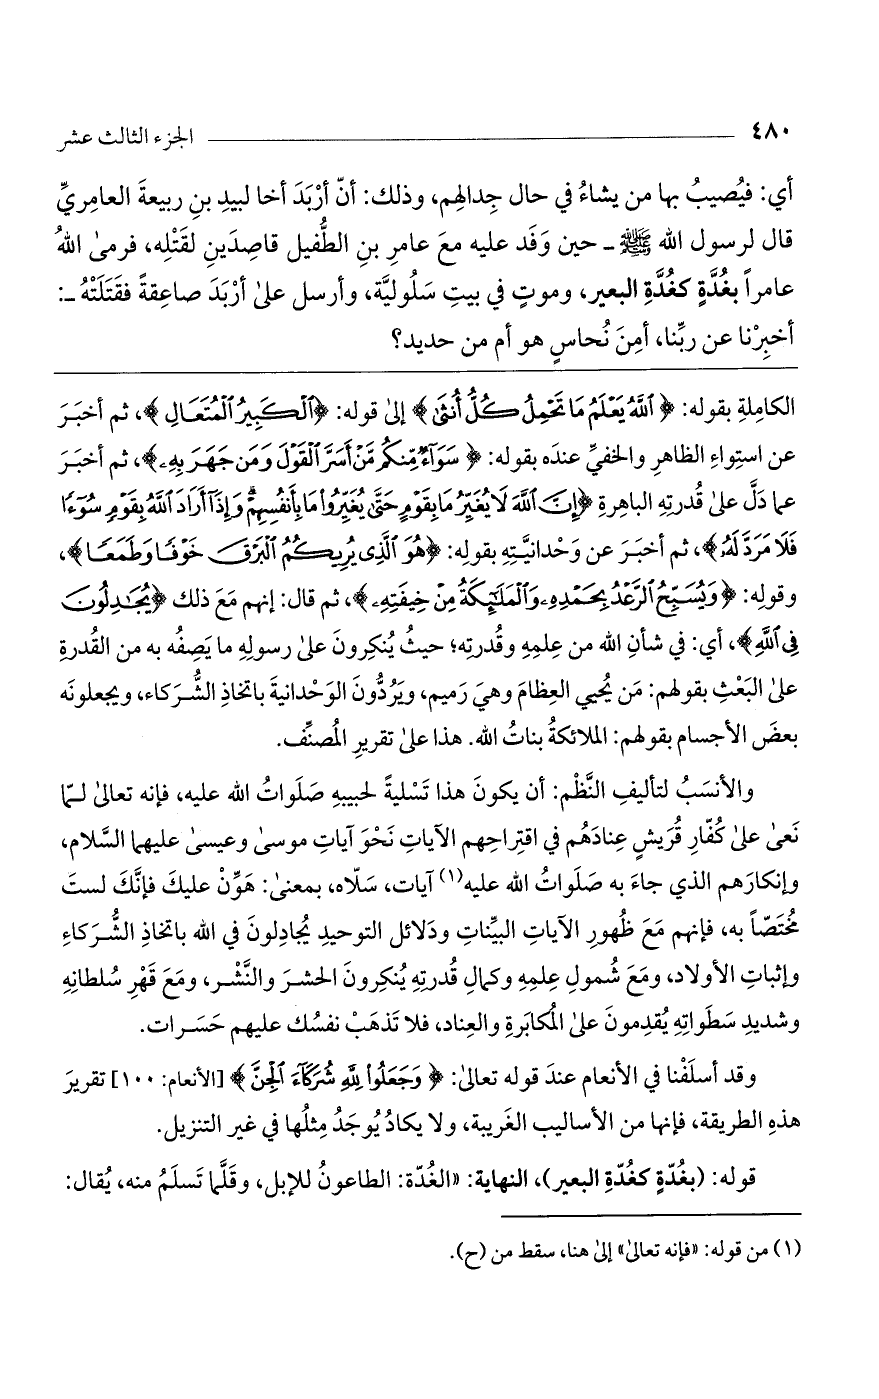 ٤٨٠ الجزء الثالث عشر
أي: فيُصيبُ بها من يشاءُ في حال جِدالهِم، وذلك: أنّ أرْبَدَ أخا لبيدِ بنِ ربيعةَ العامِريِّ
قال لرسول الله ﷺ ـ حين وَفَد عليه معَ عامرِ بنِ الطُّفيل قاصِدَينِ لقَتْلِه، فرمىٰ اللهُ
عامراً بغُدَّةٍ كغُدَّةِ البعير، وموتٍ في بيتِ سَلُوليَّة، وأرسل علىٰ أرْبَدَ صاعِقةً فقَتَلَتْهُ ـ:
أخبِرْنا عن ربِّنا، أمِنَ نُحاسٍ هو أم من حديد؟
الكامِلةِ بقوله: ﴿ٱللَّهُ يَعْلَمُ مَا تَحْمِلُ كُلُّ أُنثَىٰ﴾ إلىٰ قوله: ﴿ٱلْكَبِيرُ ٱلْمُتَعَالِ﴾، ثم أخبَرَ
عن استِواءِ الظاهرِ والخفيِّ عندَه بقوله: ﴿سَوَآءٌ مِّنكُم مَّنْ أَسَرَّ ٱلْقَوْلَ وَمَن جَهَرَ بِهِۦ﴾، ثم أخبَرَ
عما دَلَّ علىٰ قُدرتِهِ الباهِرةِ ﴿إِنَّ ٱللَّهَ لَا يُغَيِّرُ مَا بِقَوْمٍ حَتَّىٰ يُغَيِّرُوا۟ مَا بِأَنفُسِهِمْ ۗ وَإِذَآ أَرَادَ ٱللَّهُ بِقَوْمٍ سُوٓءًا
فَلَا مَرَدَّ لَهُۥ﴾، ثم أخبَرَ عن وَحْدانيَّتِهِ بقولِه: ﴿هُوَ ٱلَّذِى يُرِيكُمُ ٱلْبَرْقَ خَوْفًا وَطَمَعًا﴾،
وقولِه: ﴿وَيُسَبِّحُ ٱلرَّعْدُ بِحَمْدِهِۦ وَٱلْمَلَٰٓئِكَةُ مِنْ خِيفَتِهِۦ﴾، ثم قال: إنهم مَعَ ذلك ﴿يُجَٰدِلُونَ
فِى ٱللَّهِ﴾، أي: في شأنِ الله من عِلمِهِ وقُدرتِه؛ حيثُ يُنكِرونَ علىٰ رسولِهِ ما يَصِفُه به من القُدرةِ
علىٰ البَعْثِ بقولهم: مَن يُحيي العِظامَ وهيَ رَميم، ويَرُدُّونَ الوَحْدانيةَ باتخاذِ الشُّرَكاء، ويجعلونَه
بعضَ الأجسام بقولهم: الملائكةُ بناتُ الله. هذا علىٰ تقريرِ المُصنِّف.
والأنسَبُ لتأليفِ النَّظْم: أن يكونَ هذا تَسْليةً لحبيبهِ صَلَواتُ الله عليه، فإنه تعالىٰ لمّا
نَعىٰ علىٰ كُفّارِ قُرَيشٍ عِنادَهُم في اقتِراحِهم الآياتِ نَحْوَ آياتِ موسىٰ وعيسىٰ عليهما السَّلام،
وإنكارَهم الذي جاءَ به صَلَواتُ الله عليه(١) آيات، سَلّاه، بمعنىٰ: هَوِّنْ عليكَ فإنَّكَ لستَ
مُختَصّاً به، فإنهم مَعَ ظُهورِ الآياتِ البيِّناتِ ودَلائل التوحيدِ يُجادِلونَ في الله باتخاذِ الشُّرَكاءِ
وإثباتِ الأولاد، ومَعَ شُمولِ عِلمِهِ وكمالِ قُدرتِهِ يُنكِرونَ الحشرَ والنَّشْر، ومَعَ قَهْرِ سُلطانِهِ
وشديدِ سَطَواتِهِ يُقدِمونَ علىٰ المُكابَرةِ والعِناد، فلا تَذهَبْ نفسُك عليهم حَسَرات.
وقد أسلَفْنا في الأنعام عندَ قوله تعالىٰ: ﴿وَجَعَلُوا۟ لِلَّهِ شُرَكَآءَ ٱلْجِنَّ﴾ [الأنعام: ١٠٠] تقريرَ
هذهِ الطريقة، فإنها من الأساليب الغَريبة، ولا يكادُ يُوجَدُ مِثلُها في غير التنزيل.
قوله: (بغُدّةٍ كغُدّةِ البعير)، النهاية: «الغُدّة: الطاعونُ للإبل، وقَلَّما تَسلَمُ منه، يُقال:
(١) من قوله: «فإنه تعالىٰ» إلىٰ هنا، سقط من (ح).